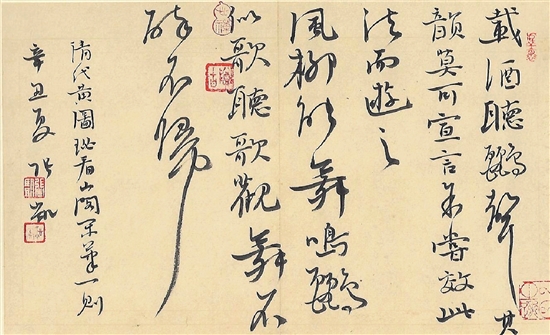 載酒聽鸝聲其
韻莫可宣言余嘗效此
法而遊之
風柳能舞鳴鸝
似歌聽歌觀舞不
醉不歸
清代黃圖珌看山閣閒筆一則
辛丑夏張